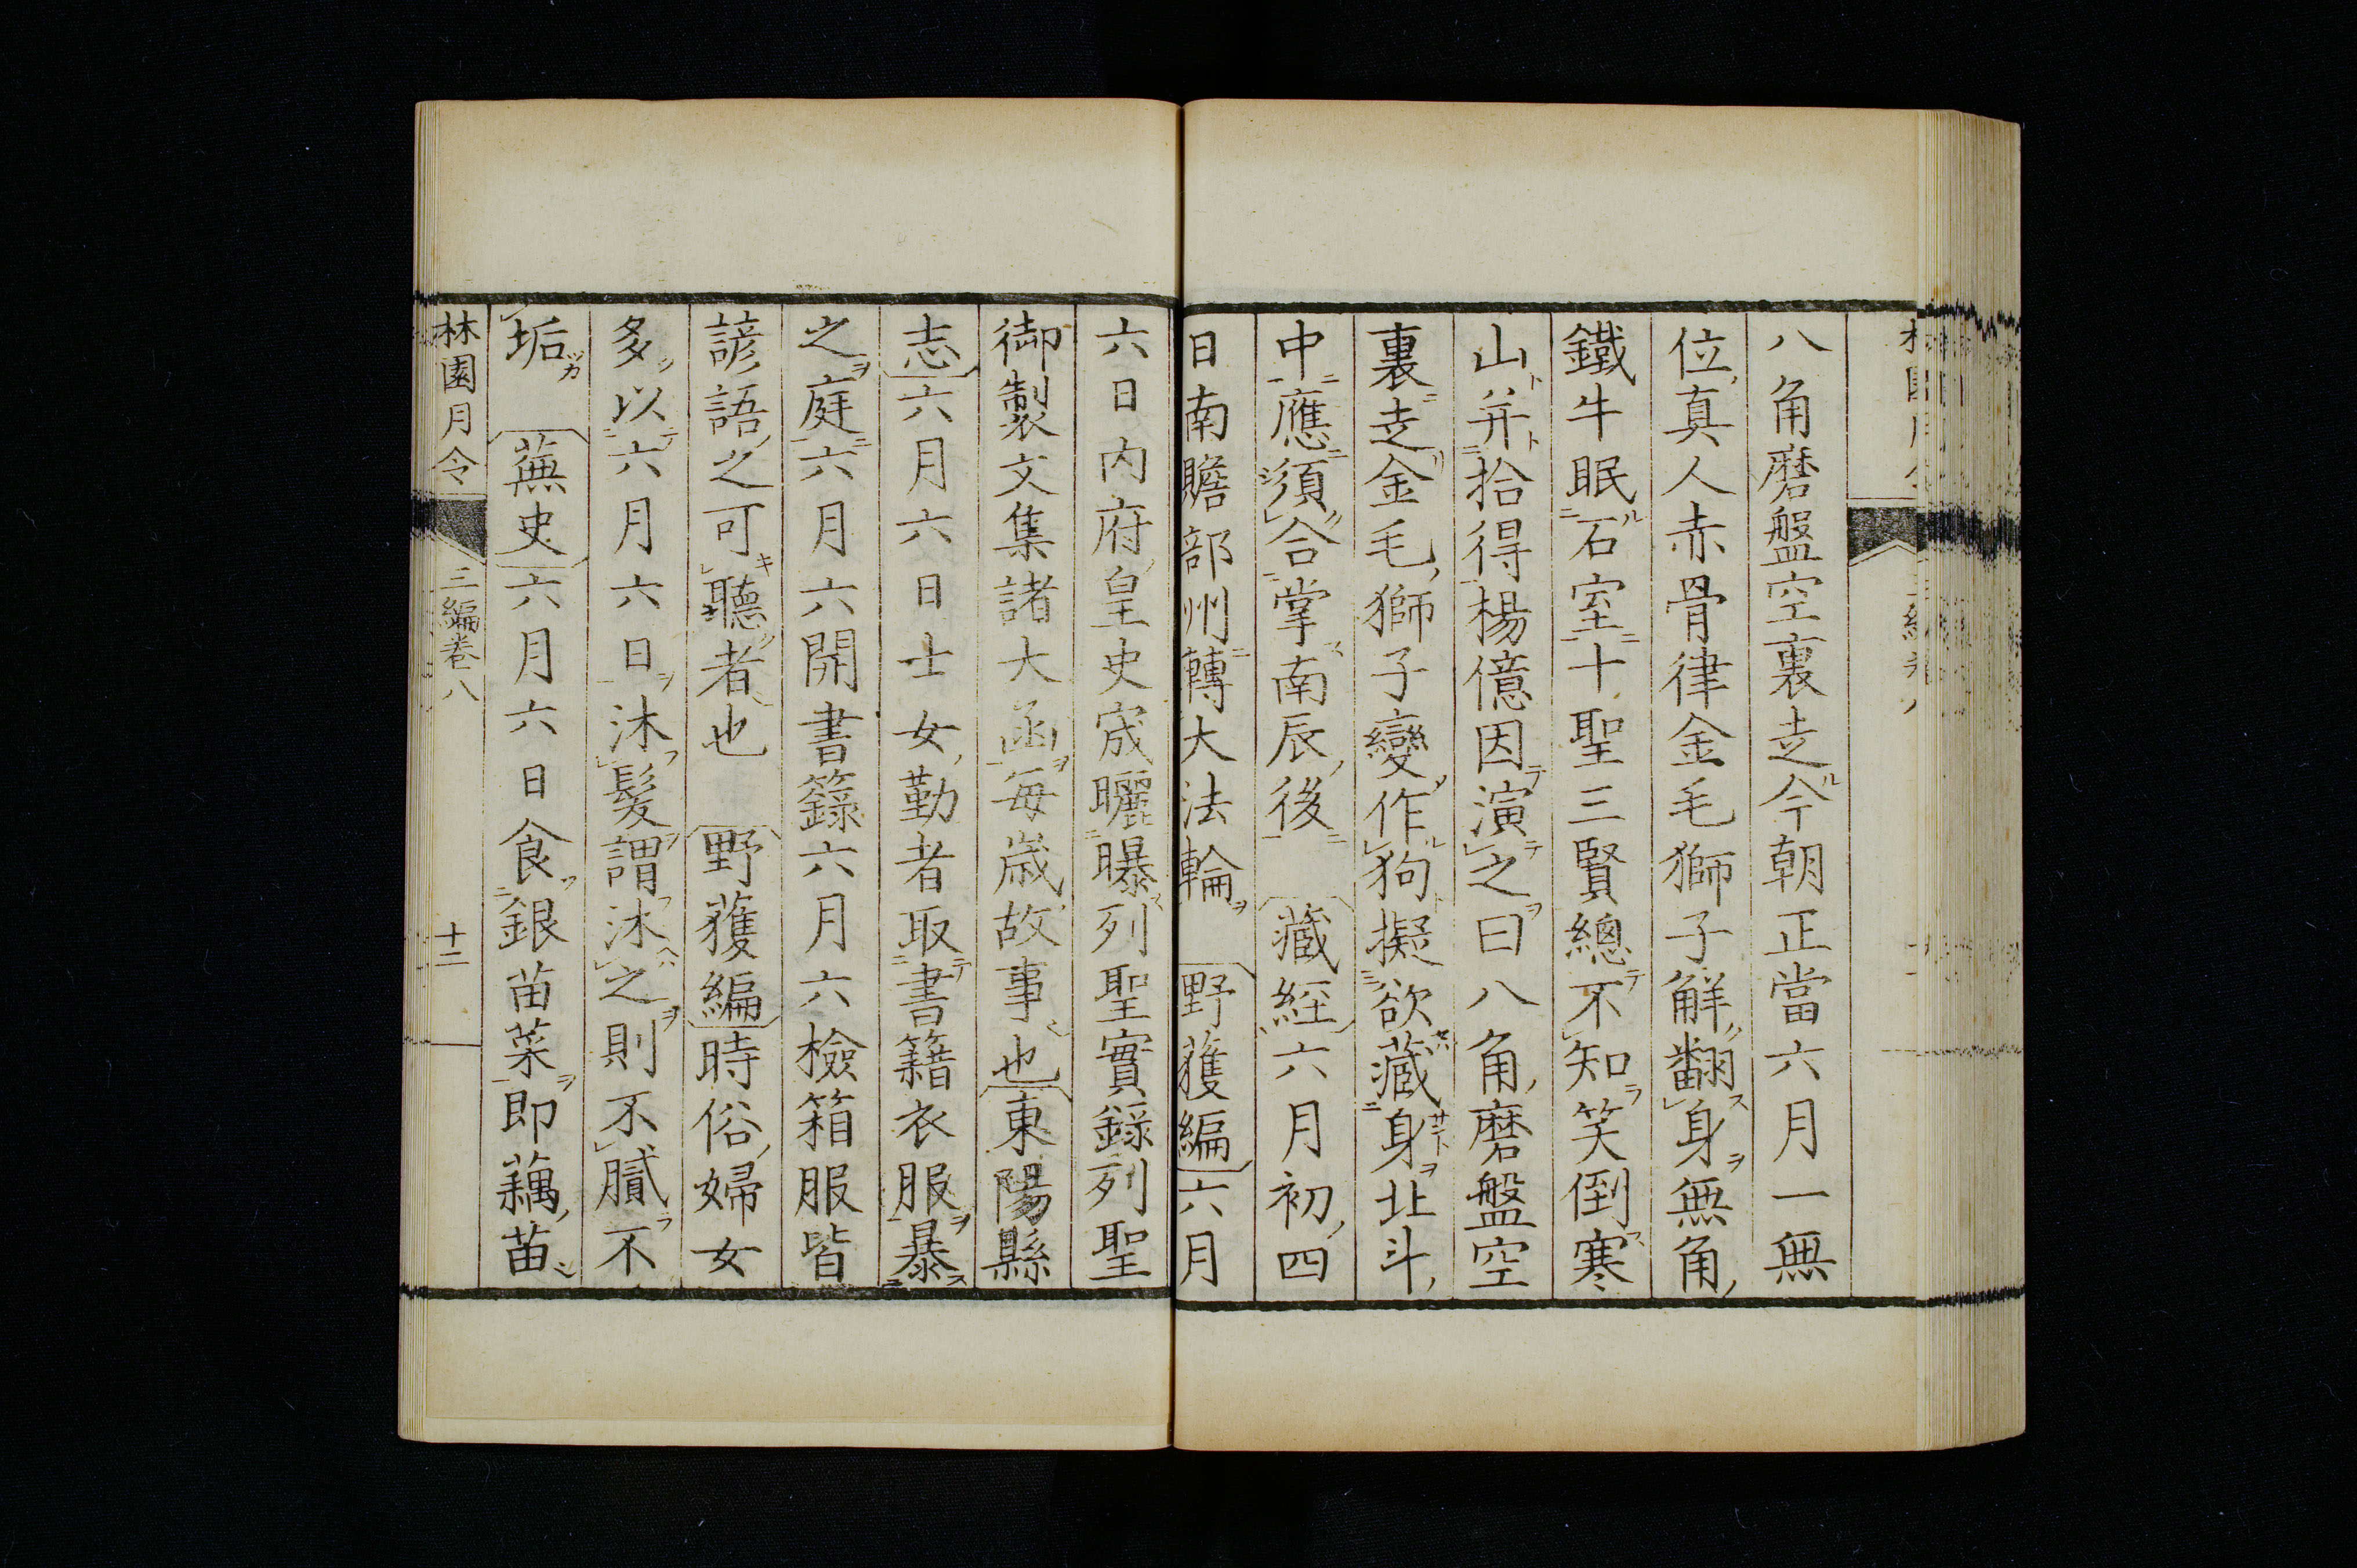 八角磨盤空裏走今朝正當六月一無
位真人赤骨律金毛獅子解翻身無角
鐵牛眠石室十聖三賢總不知笑倒寒
山并拾得楊億因演之曰八角磨盤空
裏走金毛獅子變作狗擬欲藏身北斗
中應須合掌南辰後 藏経六月初四
日南贍部州轉大法輪 野獲編六月
六日内府皇史宬曬曝列聖實録列聖
御製文集諸大函每歳故事也東陽縣
志六月六日士女勤者取書籍衣服暴
之庭六月六開書籙六月六檢箱服皆
諺語之可聽者也 野獲編時俗婦女
多以六月六日沐髮謂沐之則不膩不
垢 蕪史六月六日食銀苗菜即藕苗
林園月令 三編卷八 十二